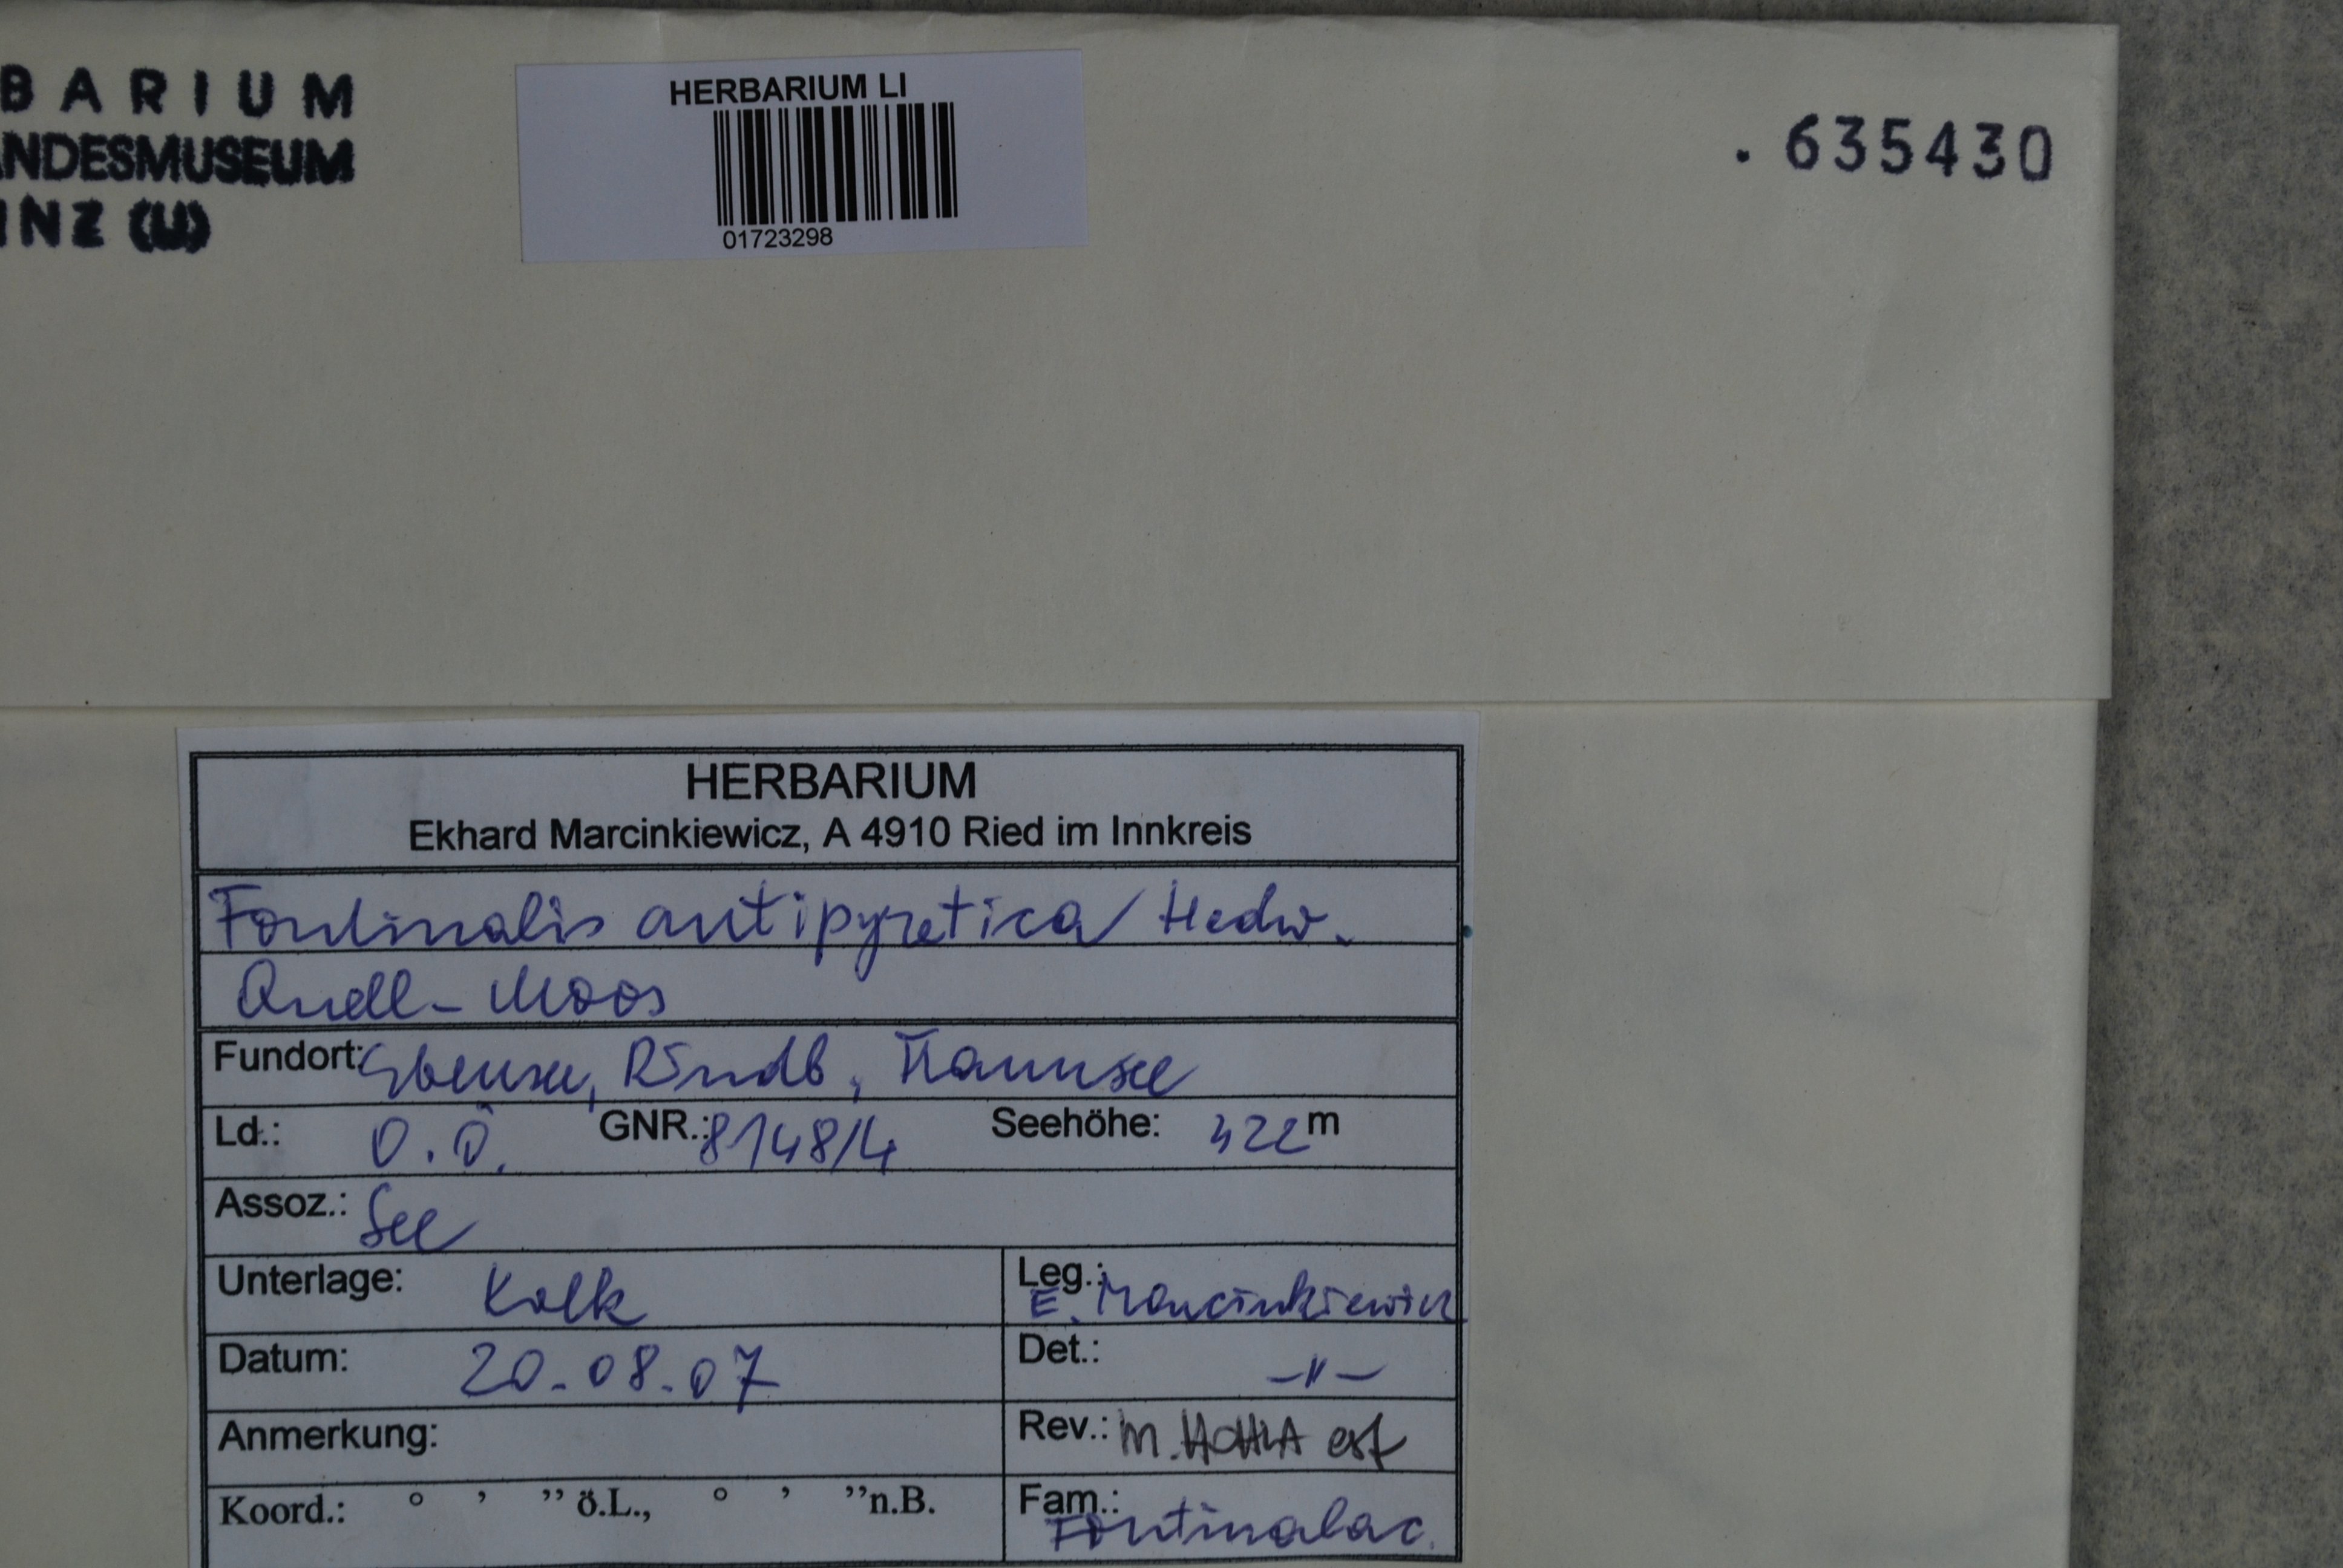 BARIUM
ANDESMUSEUM
INZ (LI)
HERBARIUM LI
01723298
. 635430
HERBARIUM
Ekhard Marcinkiewicz, A 4910 Ried im Innkreis
Fontinalis antipyretica Hedw.
Quell-Moos
Fundort: Ebensee, Rindb, Traunsee
Ld.: O.Ö. GNR.: 8148/4 Seehöhe: 422 m
Assoz.: See
Unterlage: Kalk Leg.: E. Marcinkiewicz
Datum: 20.08.07 Det.: –"–
Anmerkung: Rev.: M. HOHLA est
Koord.: ° ’ ” ö.L., ° ’ ” n.B. Fam.: Fontinalac.